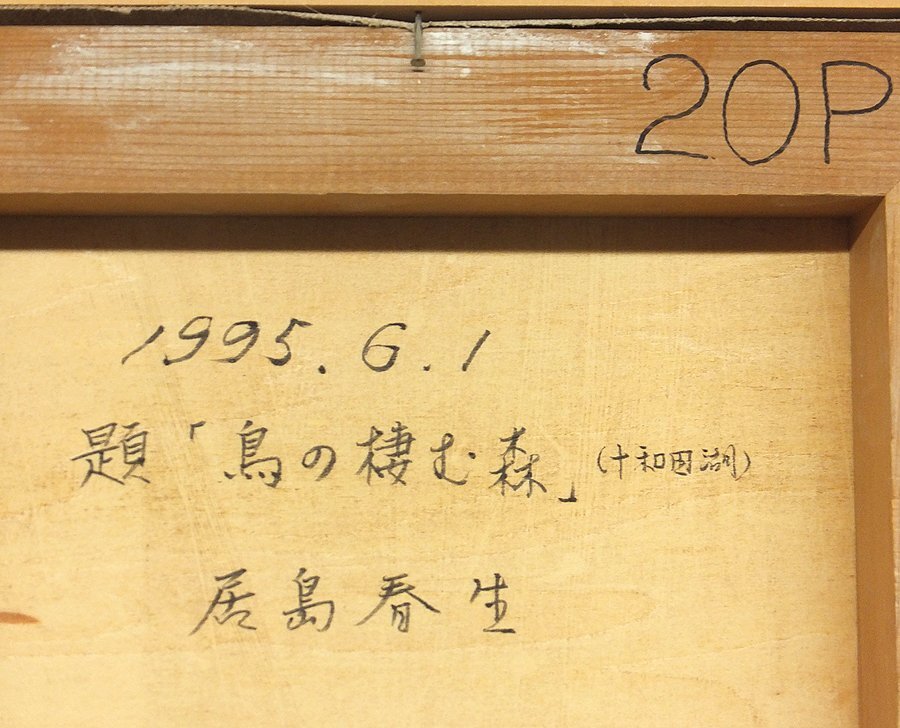 20P
1995.6.1
題「鳥の棲む森」(十和田湖)
居島春生